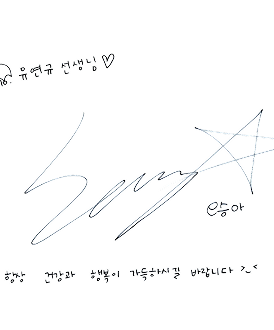 유연규 선생님♡
승아
항상 건강과 행복이 가득하시길 바랍니다 ^.^